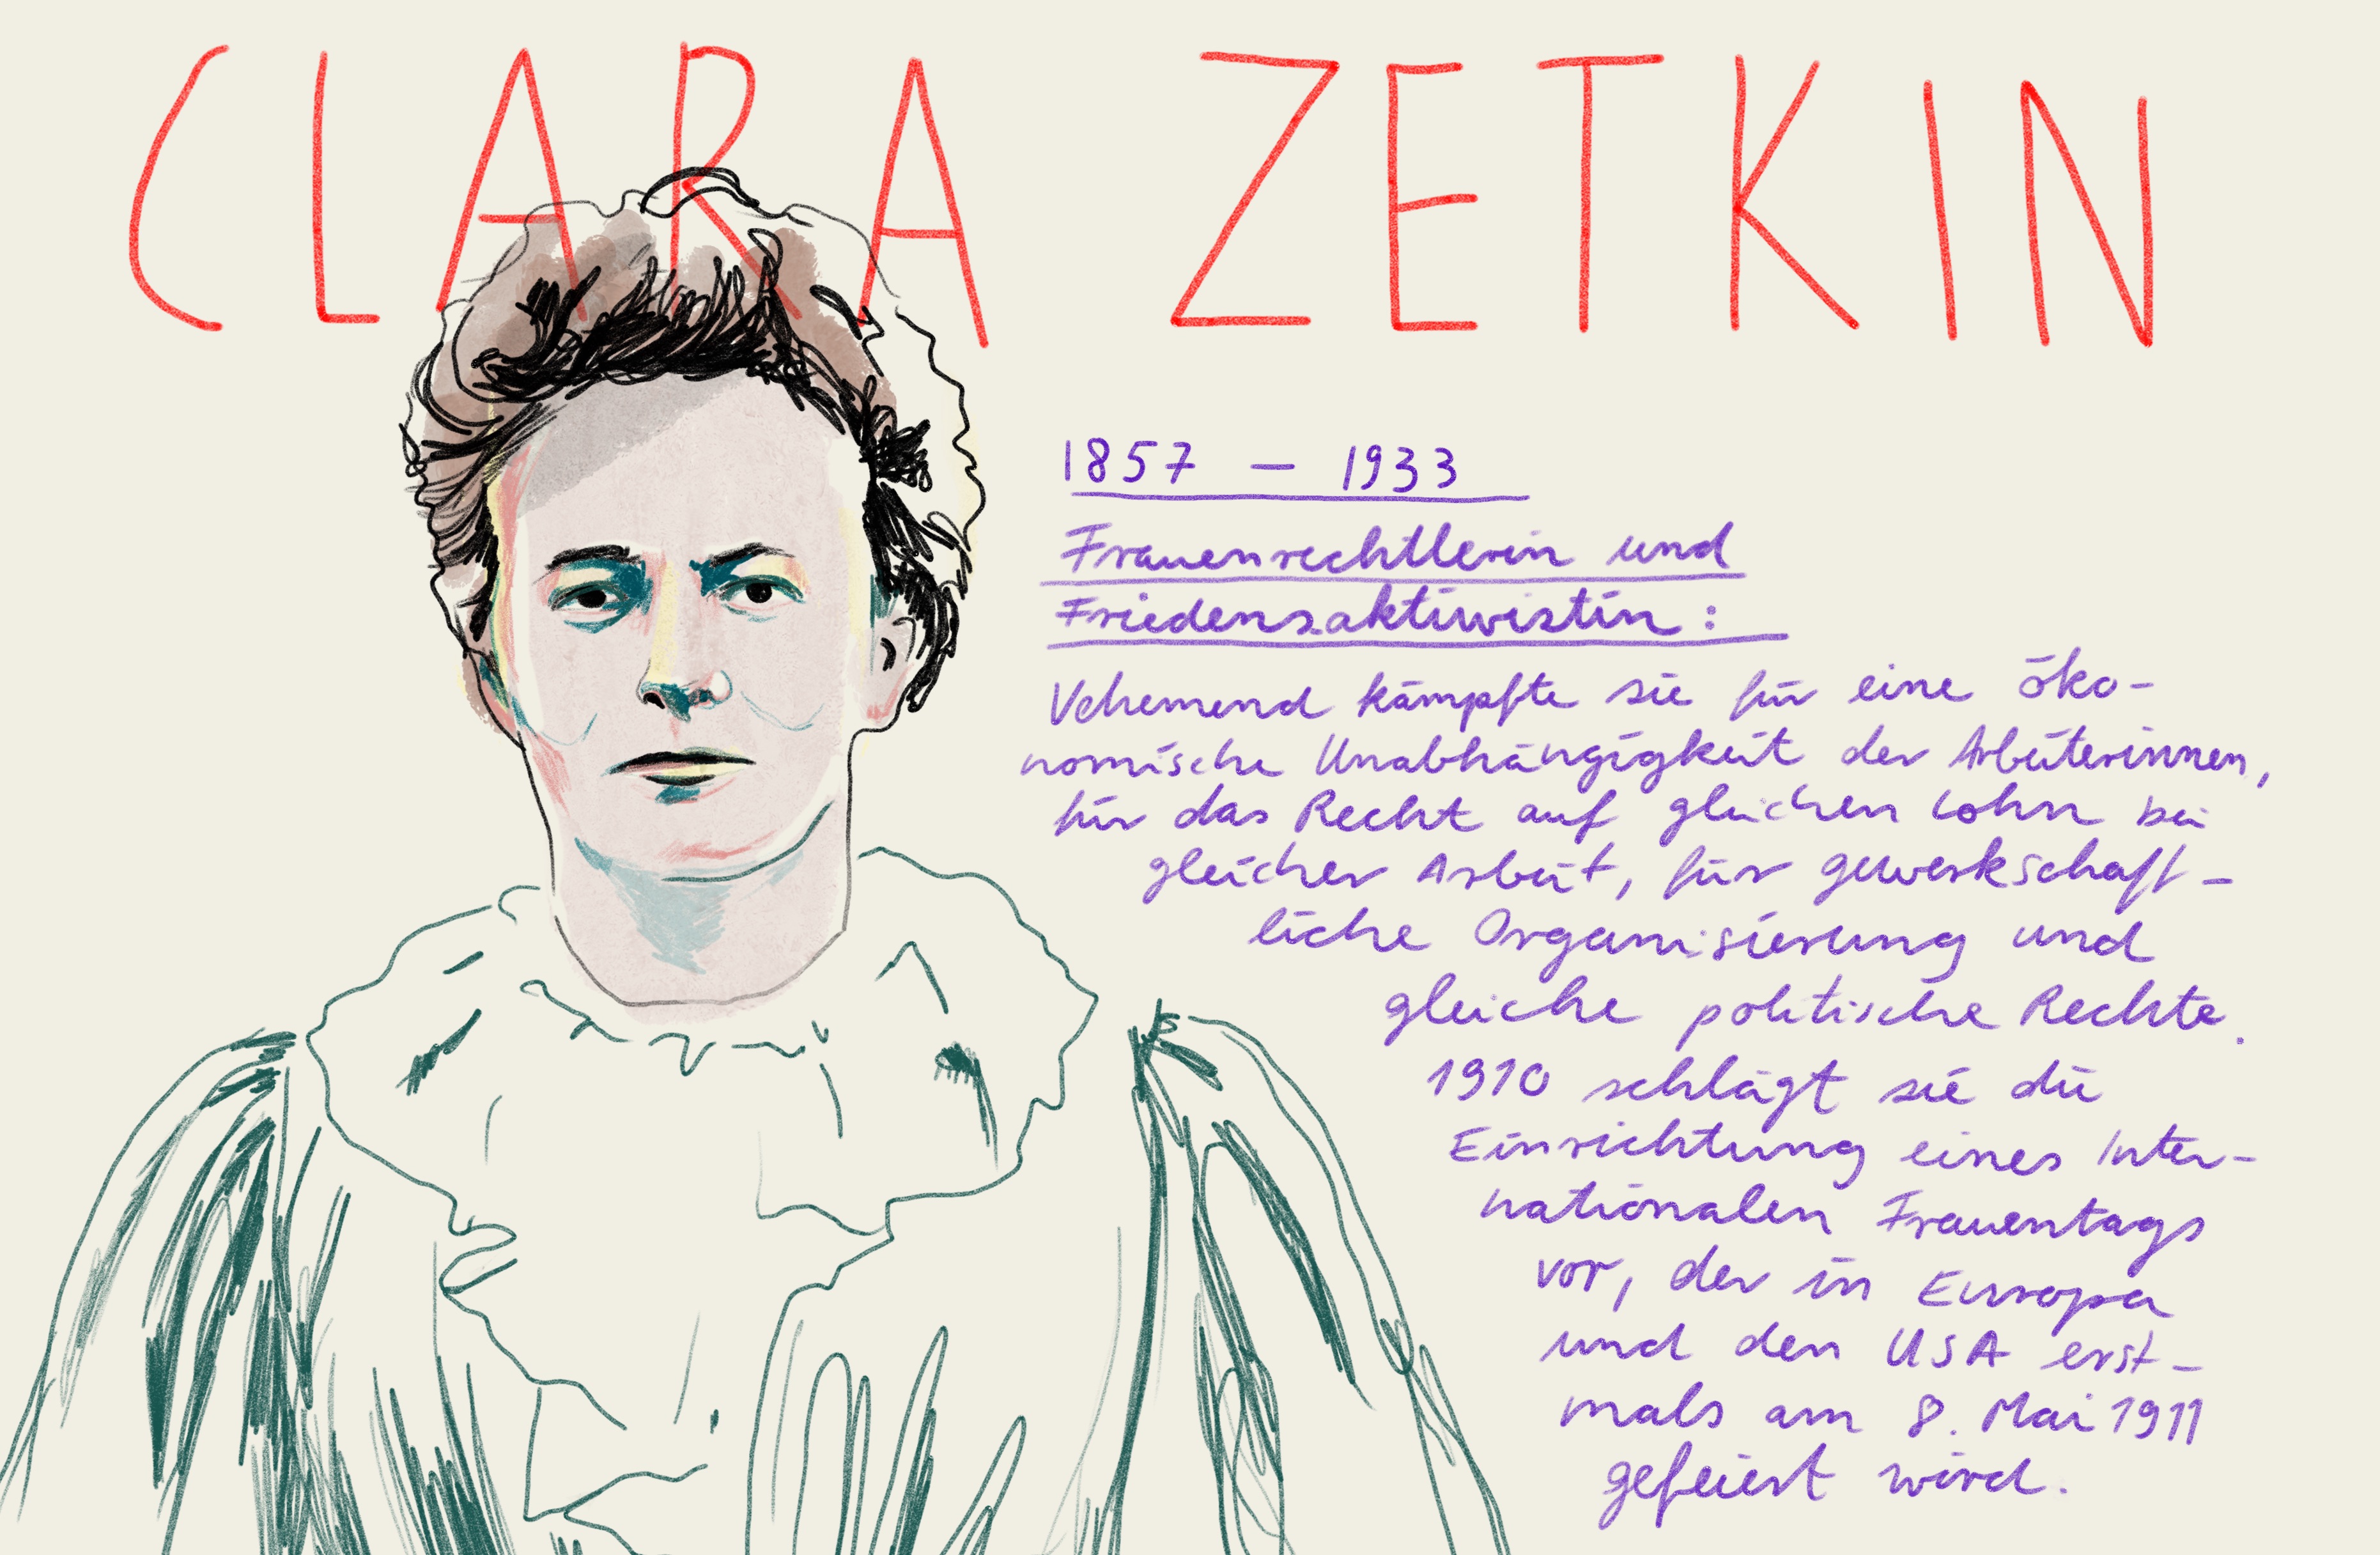 CLARA ZETKIN
1857 – 1933
Frauenrechtlerin und
Friedensaktivistin:
Vehemend kämpfte sie für eine öko-
nomische Unabhängigkeit der Arbeiterinnen,
für das Recht auf gleichen Lohn bei
gleicher Arbeit, für gewerkschaft-
liche Organisierung und
gleiche politische Rechte.
1910 schlägt sie die
Einrichtung eines Inter-
nationalen Frauentags
vor, der in Europa
und den USA erst-
mals am 8. Mai 1911
gefeiert wird.